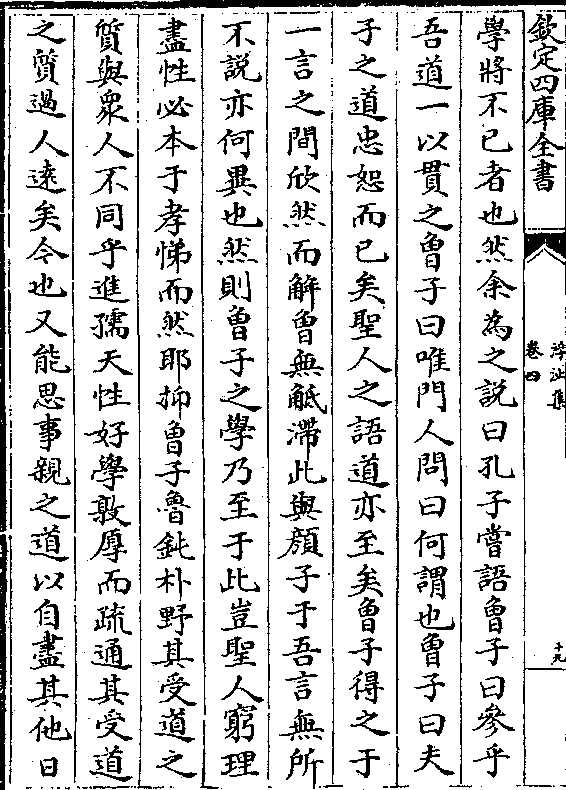 欽定四庫全書
浮沚集
卷四
十九
學將不已者也然余為之說曰孔子嘗語曾子曰參乎
吾道一以貫之曾子曰唯門人問曰何謂也曾子曰夫
子之道忠恕而已矣聖人之語道亦至矣曾子得之于
一言之間欣然而解曾無觝滯此與顏子于吾言無所
不說亦何異也然則曾子之學乃至于此豈聖人窮理
盡性必本于孝悌而然耶抑曾子魯鈍朴野其受道之
質與衆人不同乎進孺天性好學敦厚而疏通其受道
之質過人遠矣今也又能思事親之道以自盡其他日